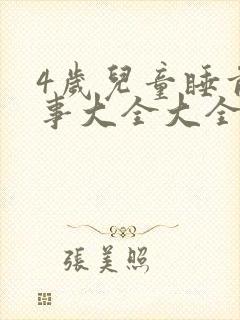 4歲兒童睡前
事大全大全
張美照